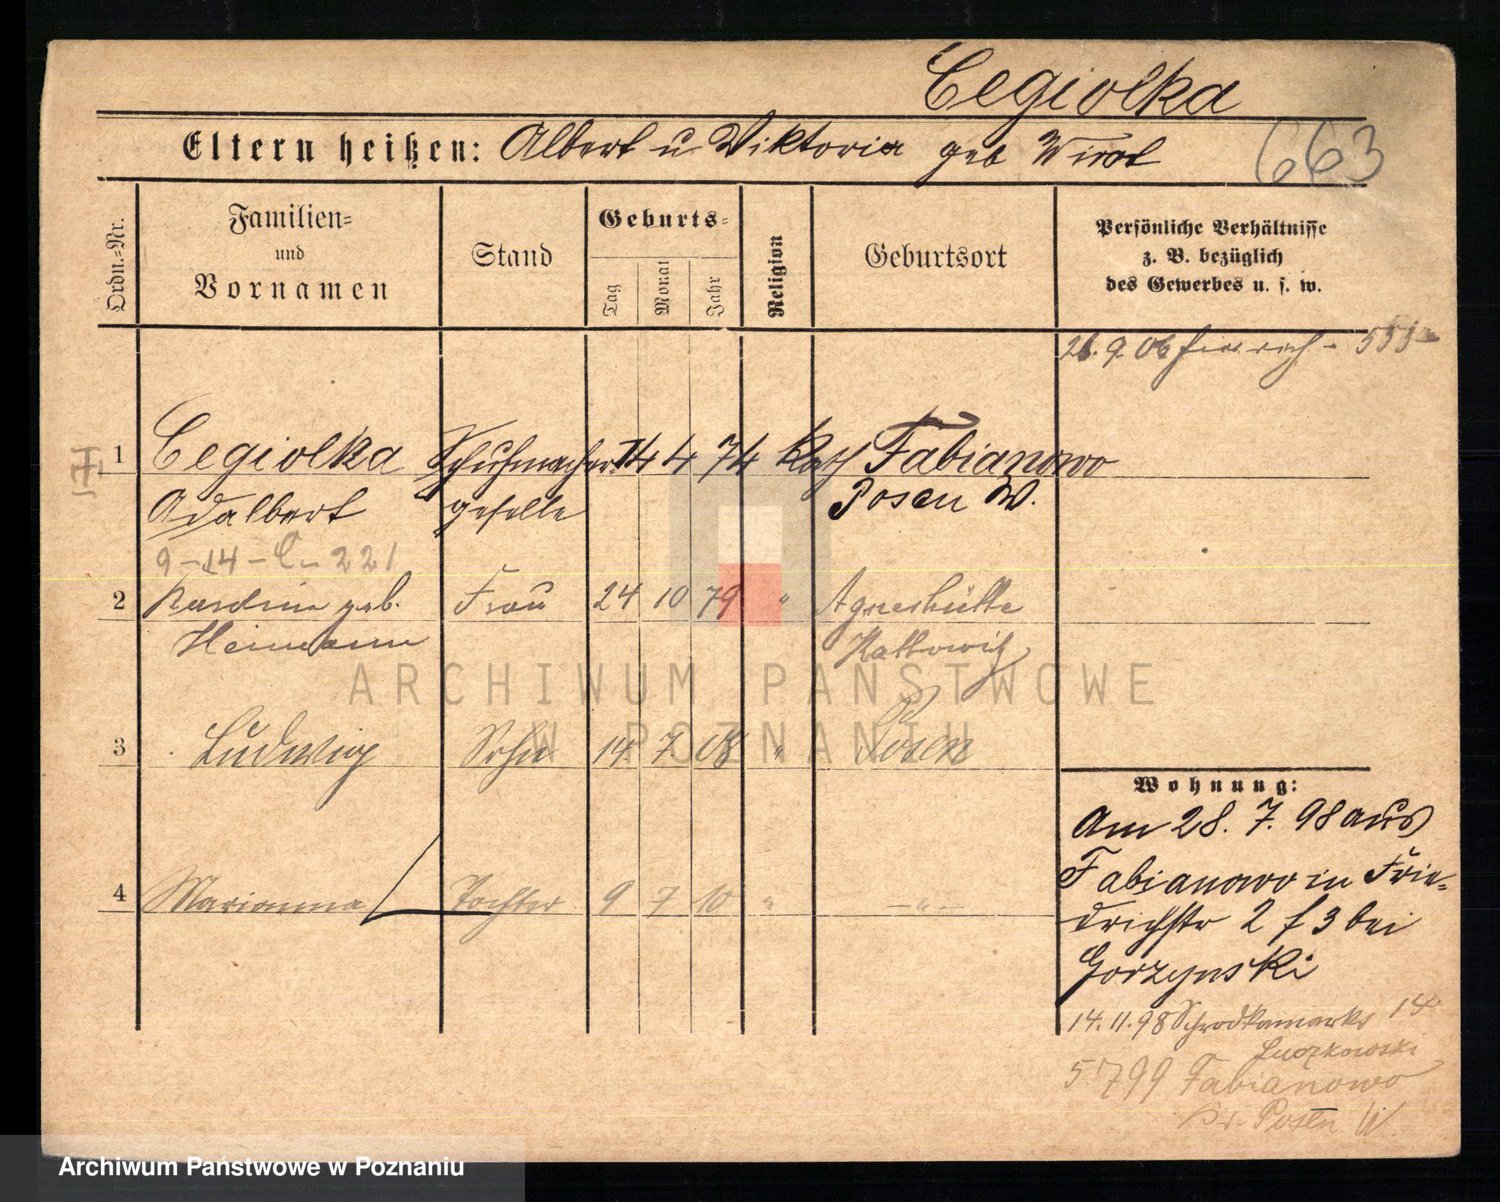 Cegiolka
Eltern heißen: Albert u Viktoria geb Wirot
663
Ordn.-Nr.
Familien-
und
Vornamen
Stand
Geburts-
Tag
Monat
Jahr
Religion
Geburtsort
Persönliche Verhältnisse
z. B. bezüglich
des Gewerbes u. s. w.
9 06
1 Cegiolka Schuhmacher 14 4 74 Kath Fabianowo
Adalbert geselle Posen W.
9-14-C-221
2 geb. Frau 24 10 79 " Agneshütte
Heimann Kattowitz
3 Ludwig Sohn 14 7 08 " Posen
4 Marianna Tochter 9 7 10 " -"-
Wohnung:
Am 28. 7. 98 aus
Fabianowo in Frie-
drichstr 2 f 3 bei
Gorzynski
14. 11. 98 Schrodkamarkt 14
Luczkowski
5 7 99 Fabianowo
Kr. Posen W.
ARCHIWUM PAŃSTWOWE
W POZNANIU
Archiwum Państwowe w Poznaniu